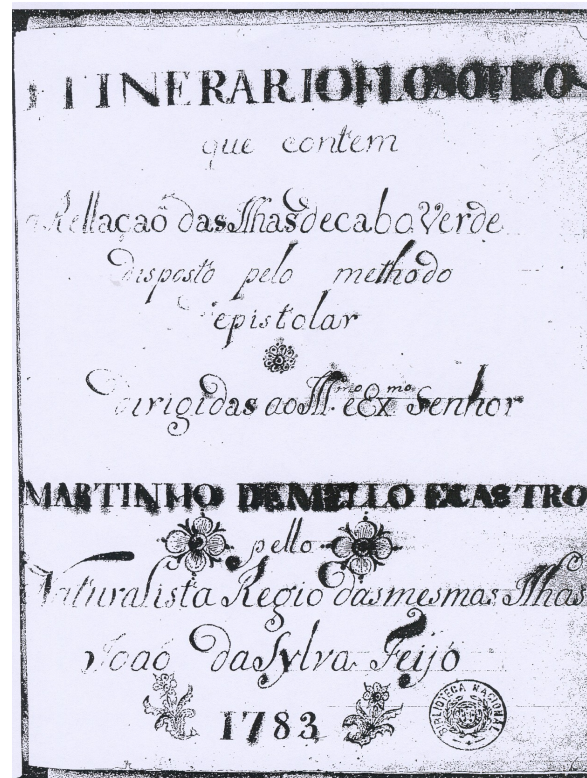 ITINERARIO FILOSOFICO
que contem
a Rellaçaõ das Ilhas de cabo Verde
disposto pelo methodo
epistolar
dirigidas ao Ill.mo e Ex.mo Senhor
MARTINHO DE MELLO E CASTRO
pello
Naturalista Regio das mesmas Ilhas
Joaõ da Sylva Feijó
1783
BIBLIOTECA NACIONAL